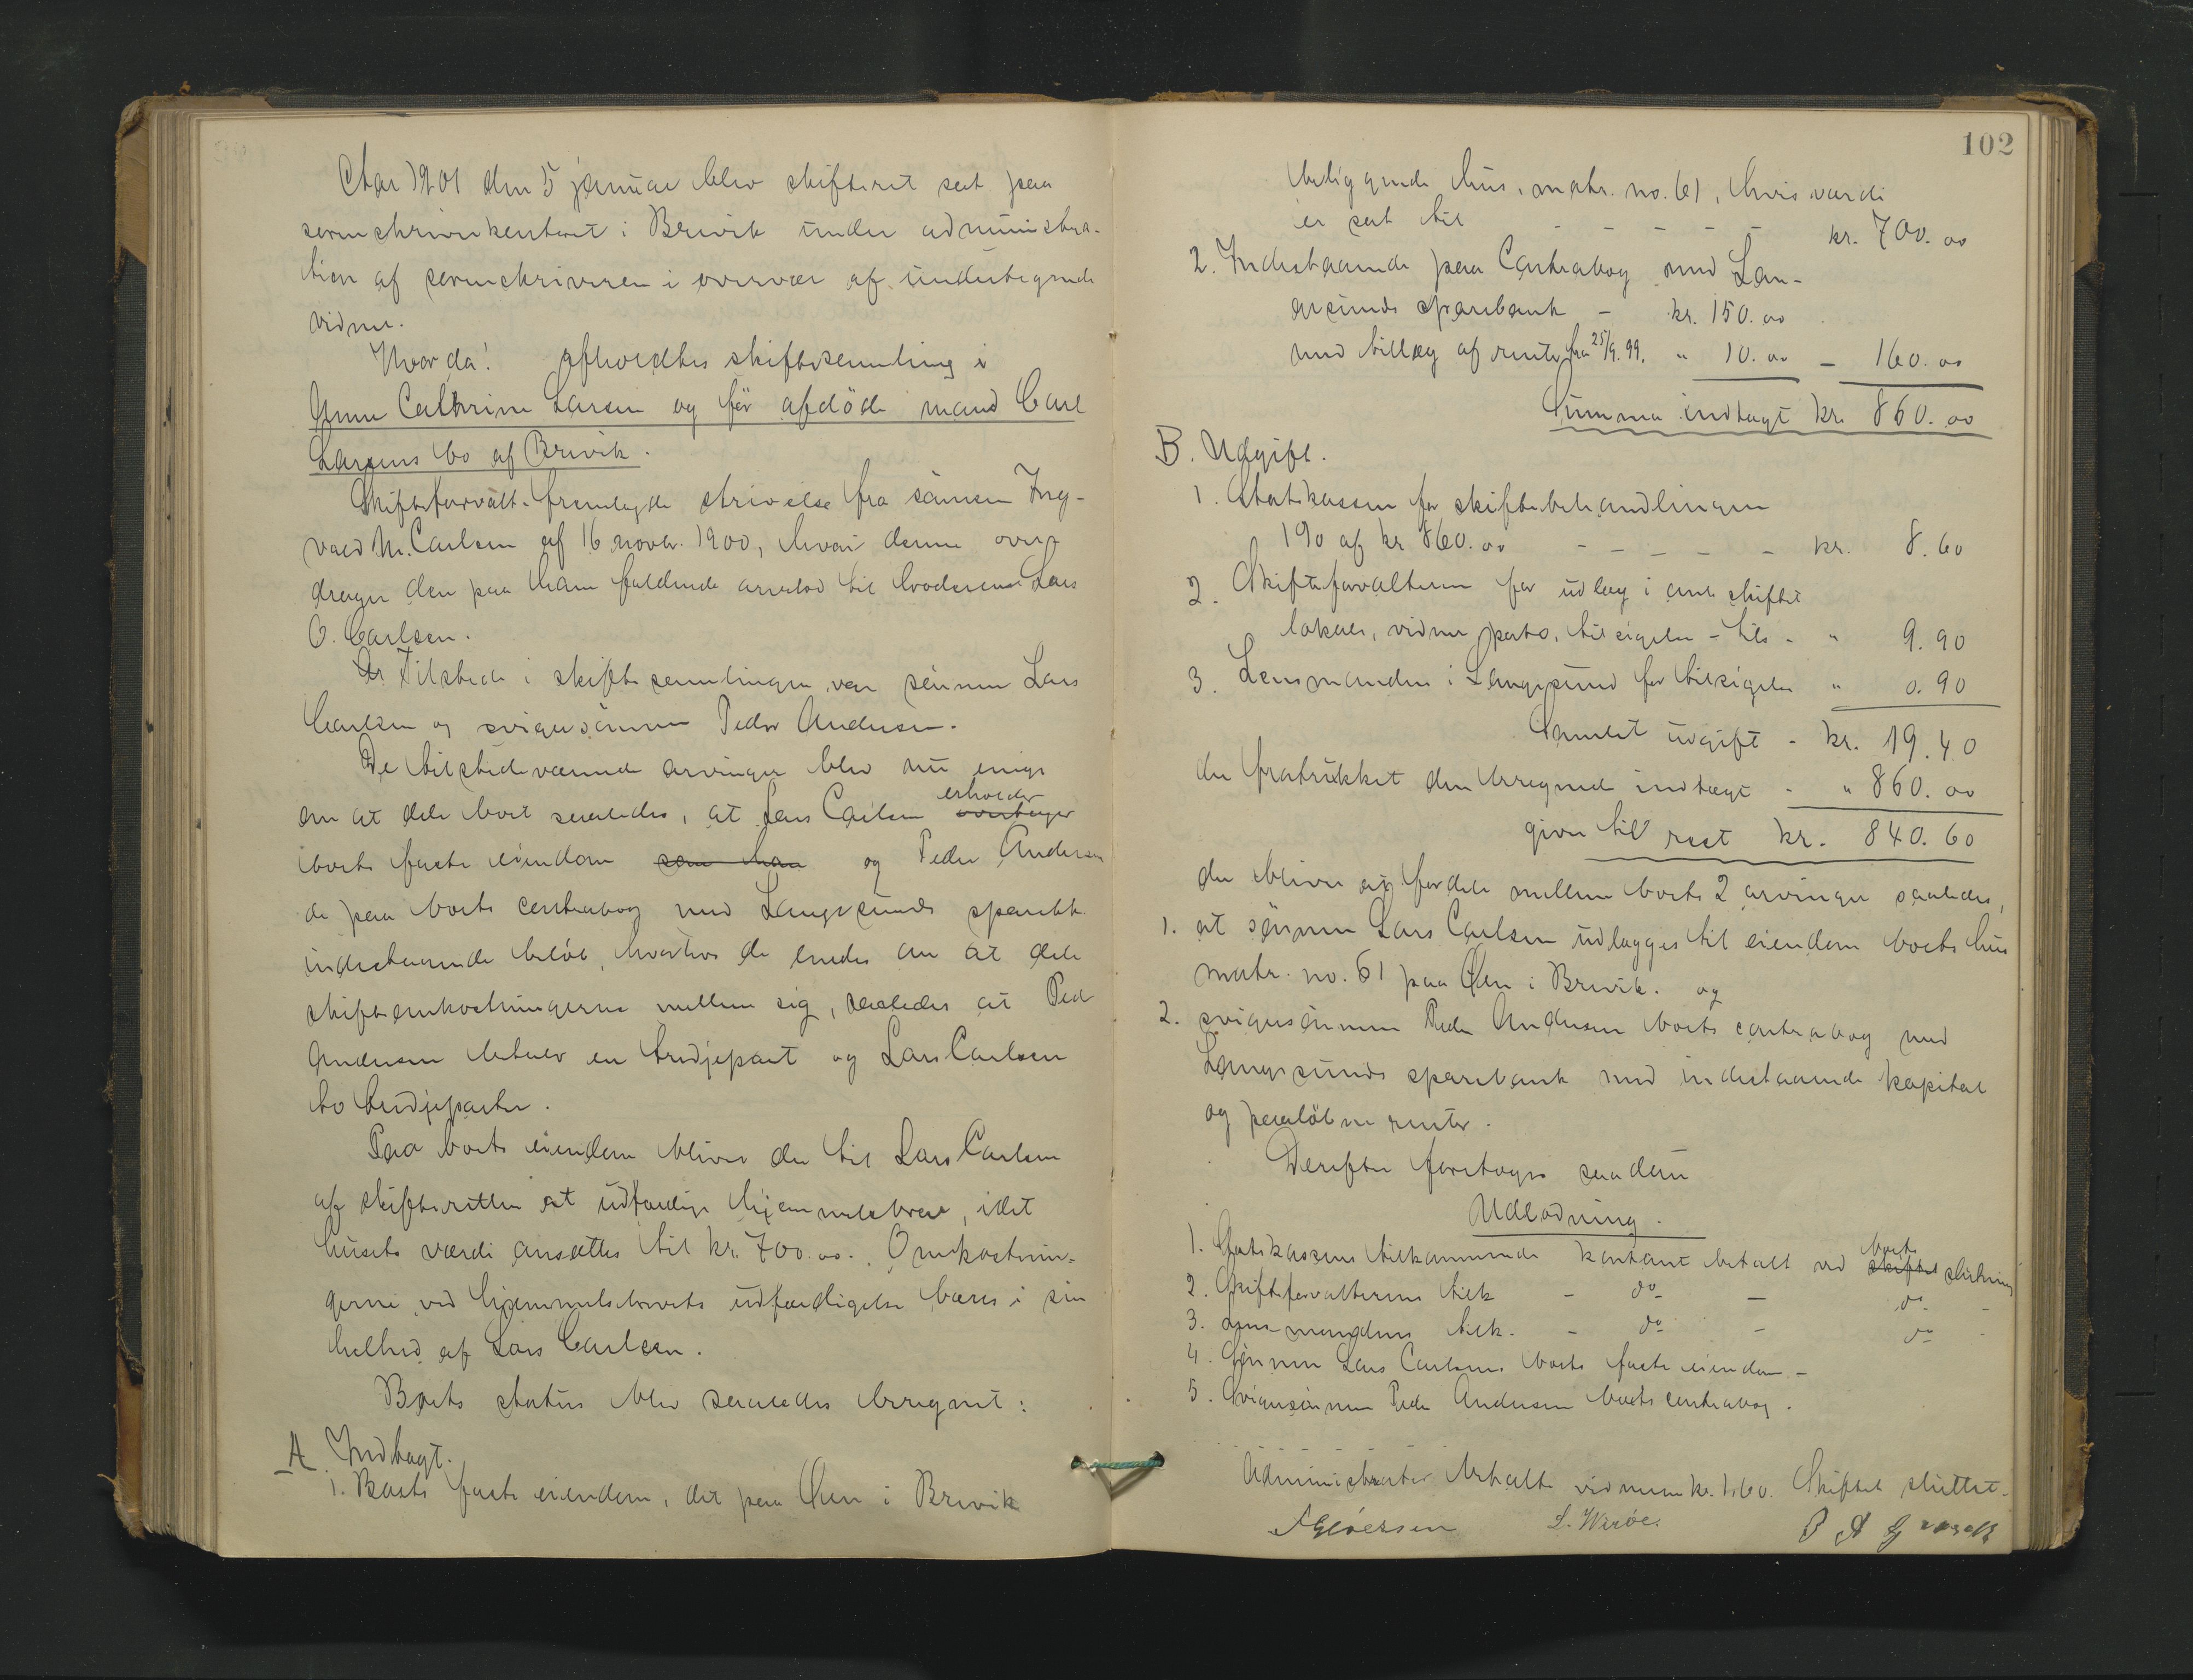 Aar 1901 den 5 januar blev skifteret sat paa
sorenskriverkontoret i Brevik under administra-
tion af sorenskriveren i overvær af undertegnede
vidner.
Hvorda! afholdtes skiftesamling i
Anne Cathrine Larsen og før afdøde mand Carl
Larsens bo af Brevik.
Skifteforvalt. fremlagde skrivelse fra sønnen Ing-
vald M. Carlsen af 16 novbr. 1900, hvori denne over-
drager den paa ham faldende arvelod til broderen Lars
O. Carlsen.
Tilstede i skiftesamlingen var sønnen Lars
Carlsen og svigersønnen Peder Andersen.
De tilstedeværende arvinger blev nu enige
om at dele boet saaledes, at Lars Carlsen overtager
erholder
boets faste eiendom som han og Peder Andersen
de paa boets contrabog med Langesunds sparebk.
indestaaende beløb, hvorhos de enedes om at dele
skifteomkostningerne mellem sig, saaledes at Ped.
Andersen betaler en tredjepart og Lars Carlsen
to tredjeparter.
Paa boets eiendom bliver der til Lars Carlsen
af skifteretten at udfærdige hjemmelsbrev, idet
husets værdi ansættes til kr. 700.00. Omkostnin-
gerne ved hjemmelsbrevets udfærdigelse bæres i sin
helhed af Lars Carlsen.
Boets status blev saaledes beregnet:
A. Indtægt.
1. Boets faste eiendom, det paa Øen i Brevik
102
beliggende hus, matr. no. 61, hvis værdi
er sat til - - - - - kr. 700.00
2. Indestaaende paa Contrabog med Lan-
gesunds sparebank - kr. 150.00
med tillæg af renter fra 25/9.99. " 10.00 - 160.00
Summa indtægt kr. 860.00
B. Udgift.
1. Statskassen for skiftebehandlingen
1% af kr 860.00 - - - - - kr. 8.60
2. Skifteforvalteren for udlæg i anl. skiftet
lokale, vidner, porto, tilsigelse - tils. - " 9.90
3. Lensmanden i Langesund for tilsigelse " 0.90
Samlet udgift - kr. 19.40
der fratrukket den beregnede indtægt - " 860.00
giver til rest kr. 840.60
der bliver at fordele mellem boets 2 arvinger saaledes,
1. at sønnen Lars Carlsen udlægges til eiendom boets hus
matr. no. 61 paa Øen i Brevik. og
2. svigersønnen Peder Andersen boets contrabog med
Langesunds sparebank med indestaaende kapital
og paaløbne renter.
Derefter foretoges saadan
Udlodning.
1. Statskassens tilkommende kontant betalt ved skiftet slutning
boets
2. Skifteforvalterens tilk. - do - do -
3. Lensmandens tilk. - do - do -
4. Sønnen Lars Carlsens boets faste eiendom -
5. Svigersønnen Peder Andersen boets contrabog.
Administrator betalte vidnerne kr. 1.60. Skiftet sluttet.
L. Wirøe.